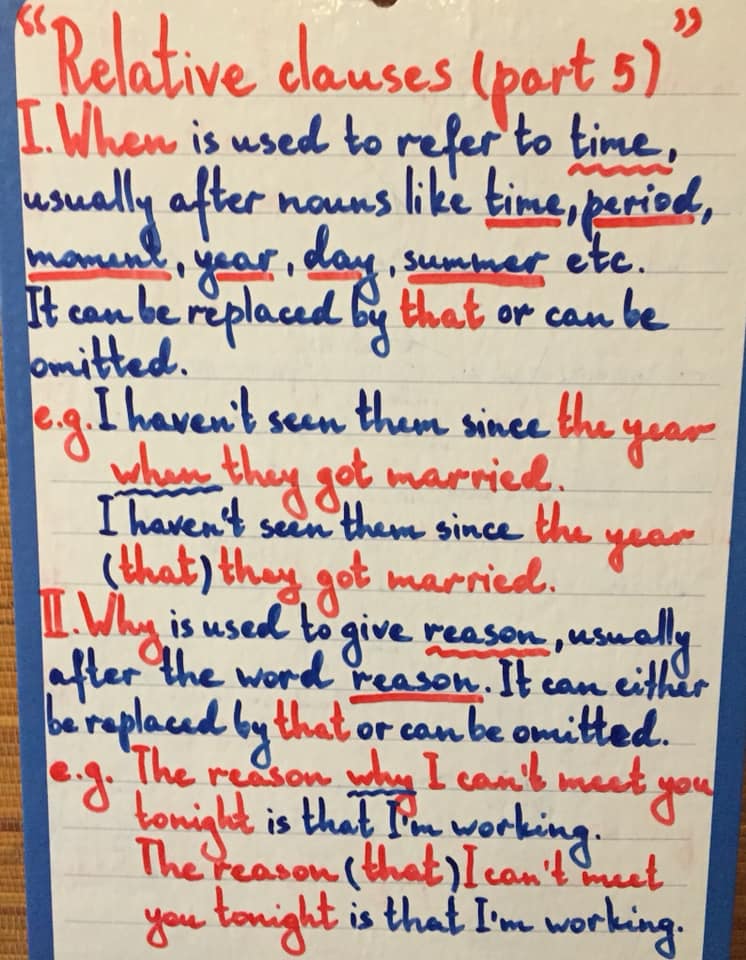 "Relative clauses (part 5)"
I. When is used to refer to time,
usually after nouns like time, period,
moment, year, day, summer etc.
It can be replaced by that or can be
omitted.
e.g. I haven't seen them since the year
when they got married.
I haven't seen them since the year
(that) they got married.
II. Why is used to give reason, usually
after the word reason. It can either
be replaced by that or can be omitted.
e.g. The reason why I can't meet you
tonight is that I'm working.
The reason (that) I can't meet
you tonight is that I'm working.